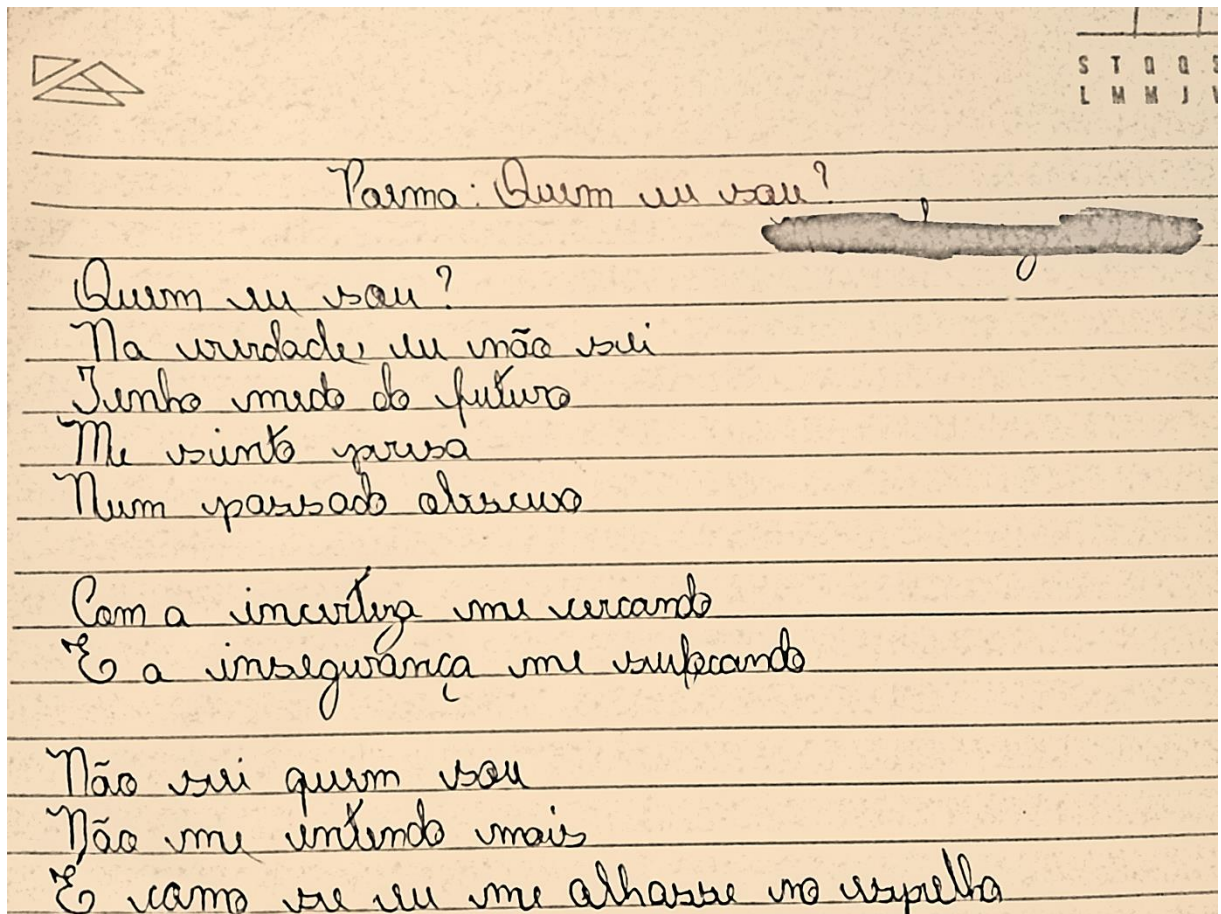 S T Q Q S
L M M J V
Poema: Quem eu sou?
Quem eu sou?
Na verdade, eu não sei
Tenho medo do futuro
Me sinto presa
Num passado obscuro
Com a incerteza me cercando
E a insegurança me sufocando
Não sei quem sou
Não me entendo mais
É como se eu me olhasse no espelho